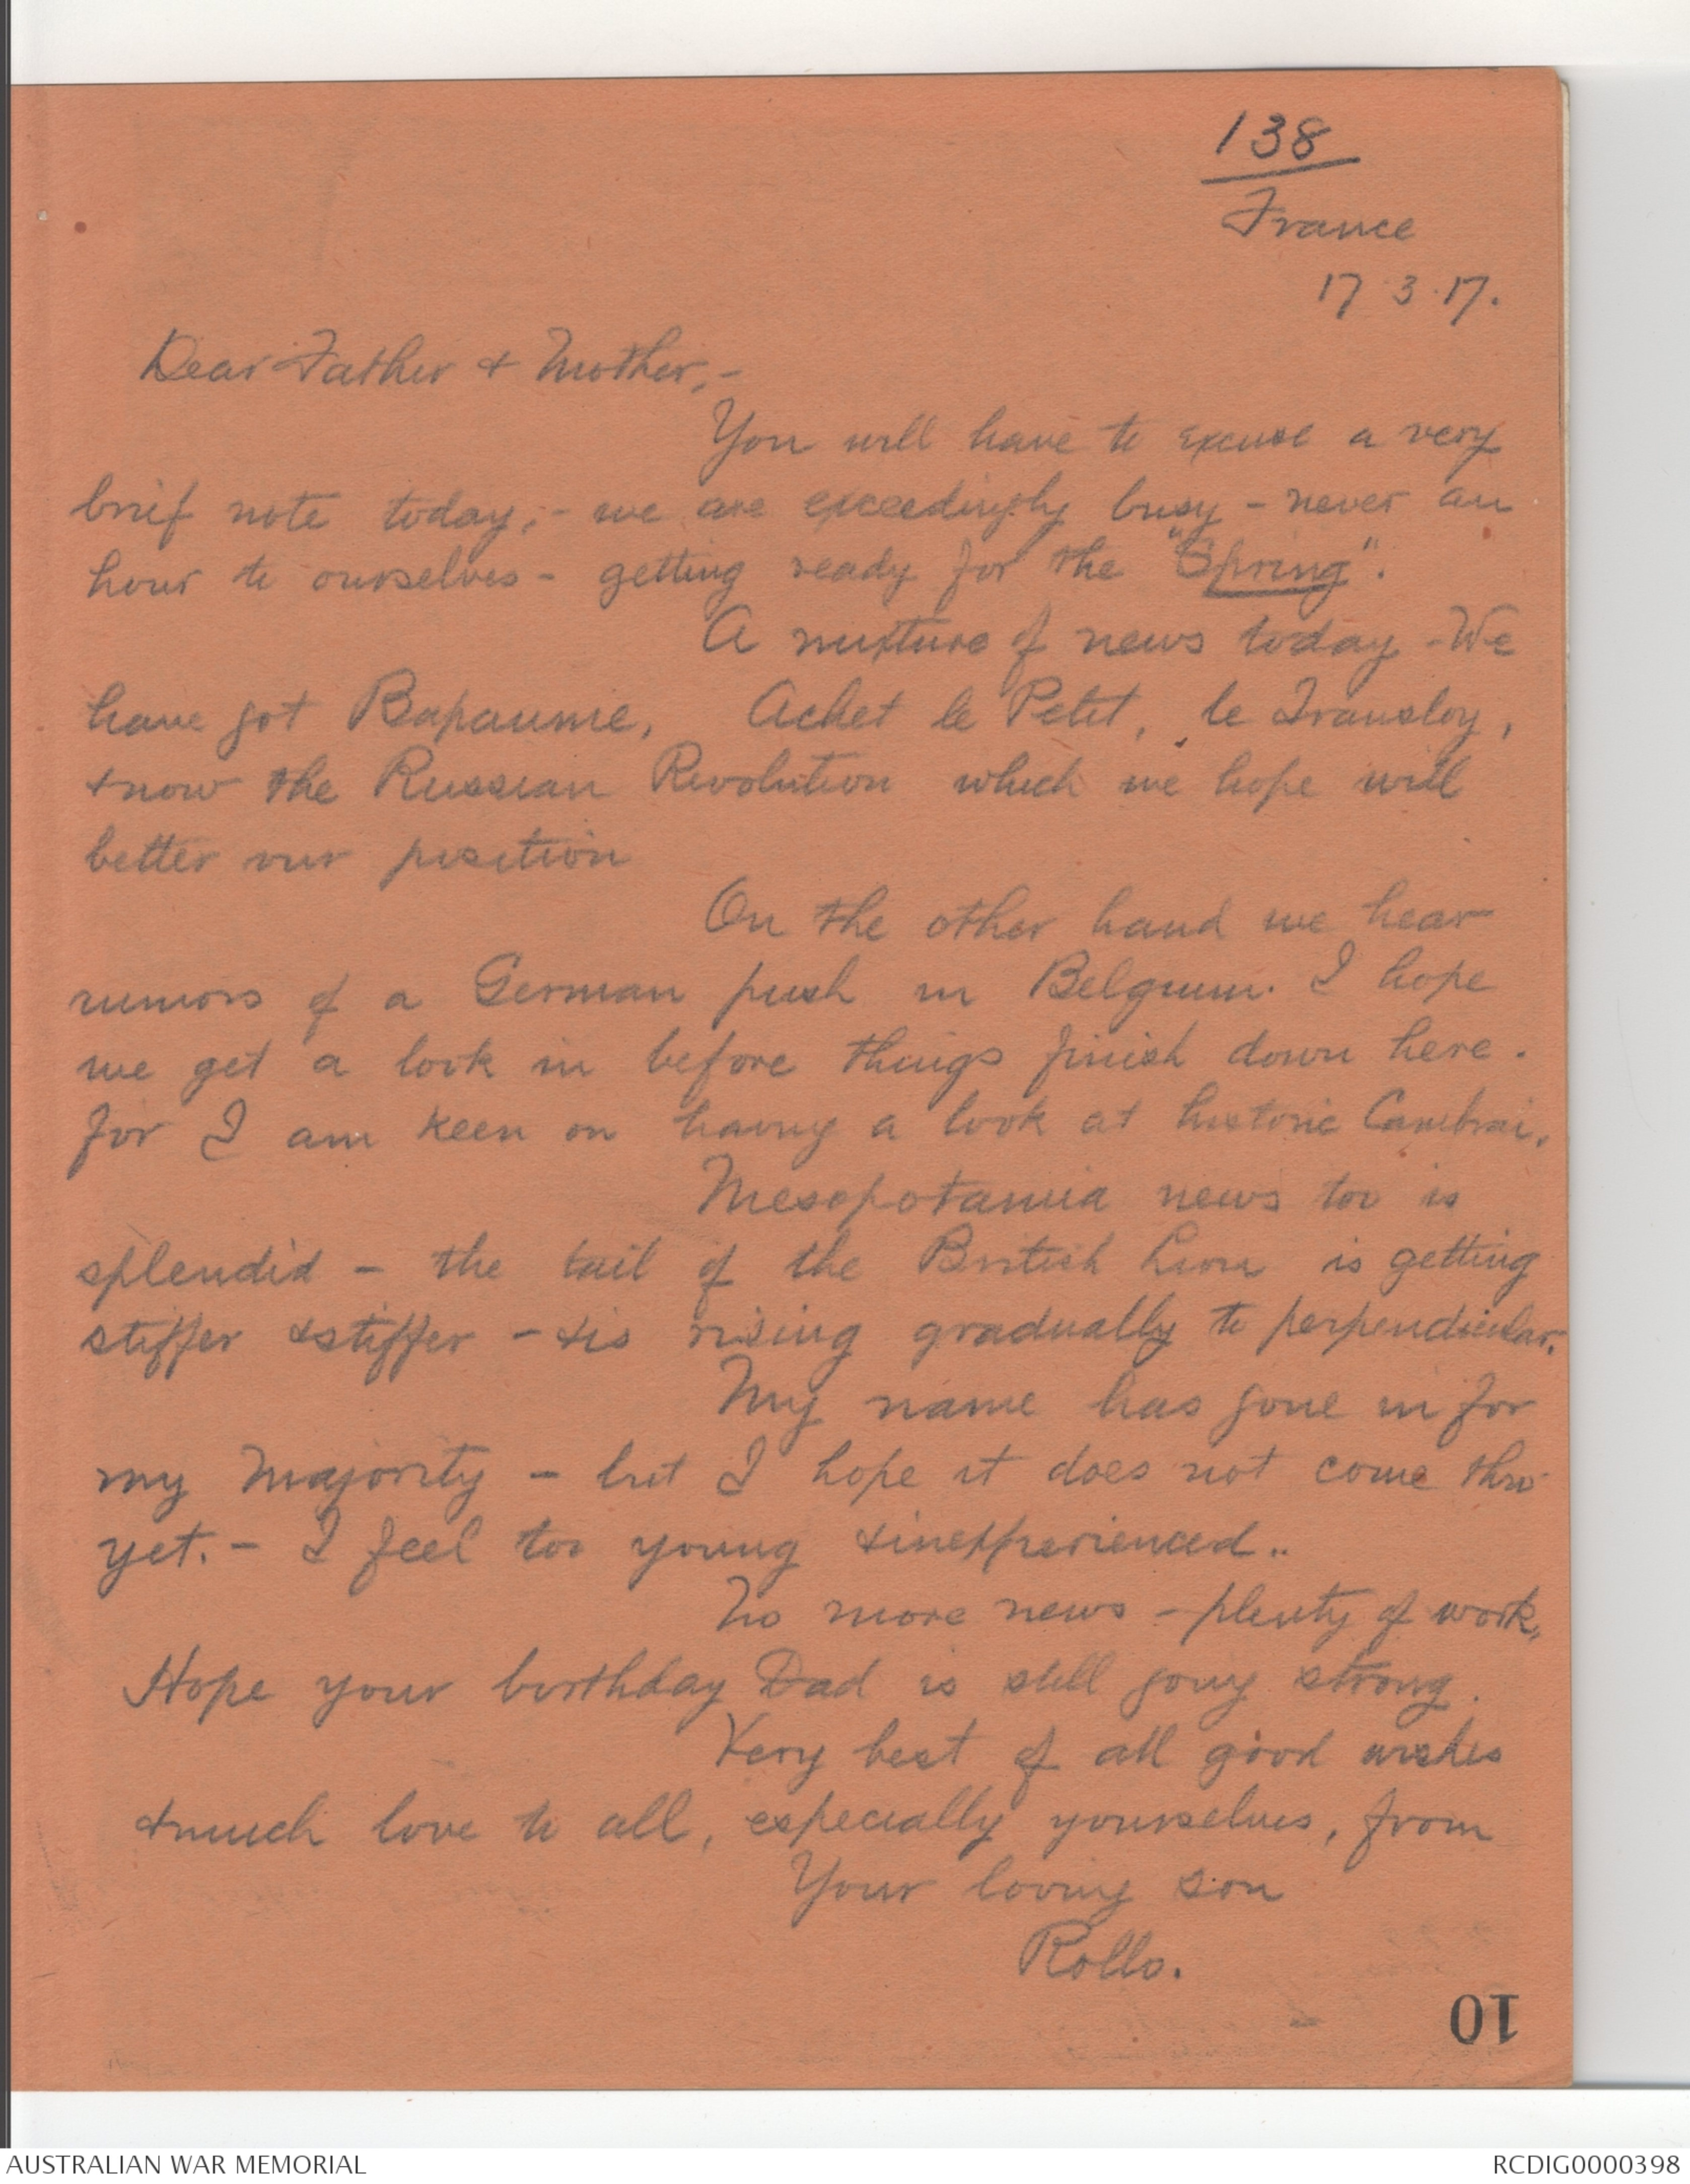 138
France
17.3.17.
Dear Father & Mother,-
You will have to excuse a very
brief note today,- we are exceedingly busy - never an
hour to ourselves - getting ready for the "Spring".
A mixture of news today - We
have got Bapaume, Achet le Petit, le Transloy,
& now the Russian Revolution which we hope will
better our position
On the other hand we hear
rumors of a German push in Belgium. I hope
we get a look in before things finish down here.
for I am keen on having a look at historic Cambrai.
Mesopotamia news too is
splendid - the tail of the British Lion is getting
stiffer & stiffer - & is rising gradually to perpendicular.
My name has gone in for
my Majority - but I hope it does not come thro
yet. - I feel too young & inexperienced..
No more news - plenty of work.
Hope your birthday Dad is still going strong.
Very best of all good wishes
& much love to all, especially yourselves, from
Your loving son
Rollo.
10
AUSTRALIAN WAR MEMORIAL
RCDIG0000398